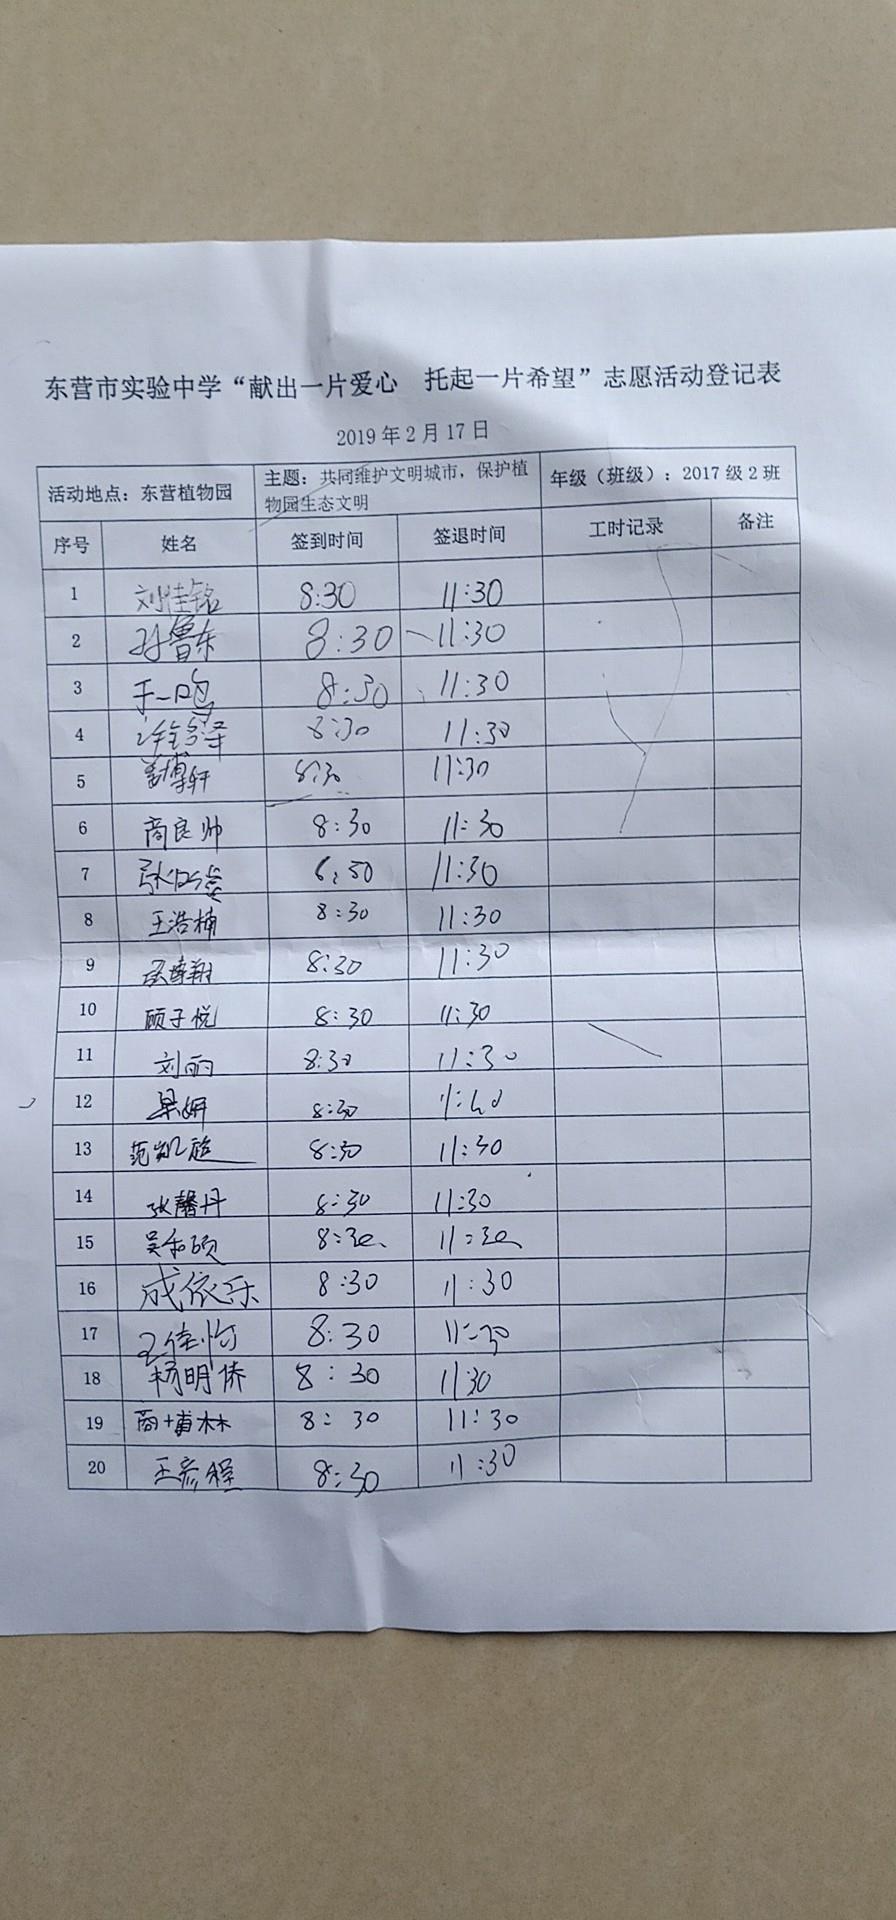 东营市实验中学“献出一片爱心 托起一片希望”志愿活动登记表
2019年2月17日
活动地点：东营植物园 主题：共同维护文明城市，保护植物园生态文明 年级（班级）：2017级2班
序号 姓名 签到时间 签退时间 工时记录 备注
1 刘佳铭 8:30 11:30
2 孙鲁东 8:30 11:30
3 于一鸣 8:30 11:30
4 8:30 11:30
5 姜博轩 8:30 11:30
6 商良帅 8:30 11:30
7 11:30
8 王浩楠 8:30 11:30
9 8:30 11:30
10 顾子悦 8:30 11:30
11 刘丽 8:30 11:30
12 梁妍 8:30
13 范凯旋 8:30 11:30
14 张馨丹 8:30 11:30
15 吴和硕 8:30 11:30
16 成依乐 8:30 11:30
17 王佳怡 8:30 11:30
18 杨明侨 8:30 11:30
19 8:30 11:30
20 王彦程 8:30 11:30